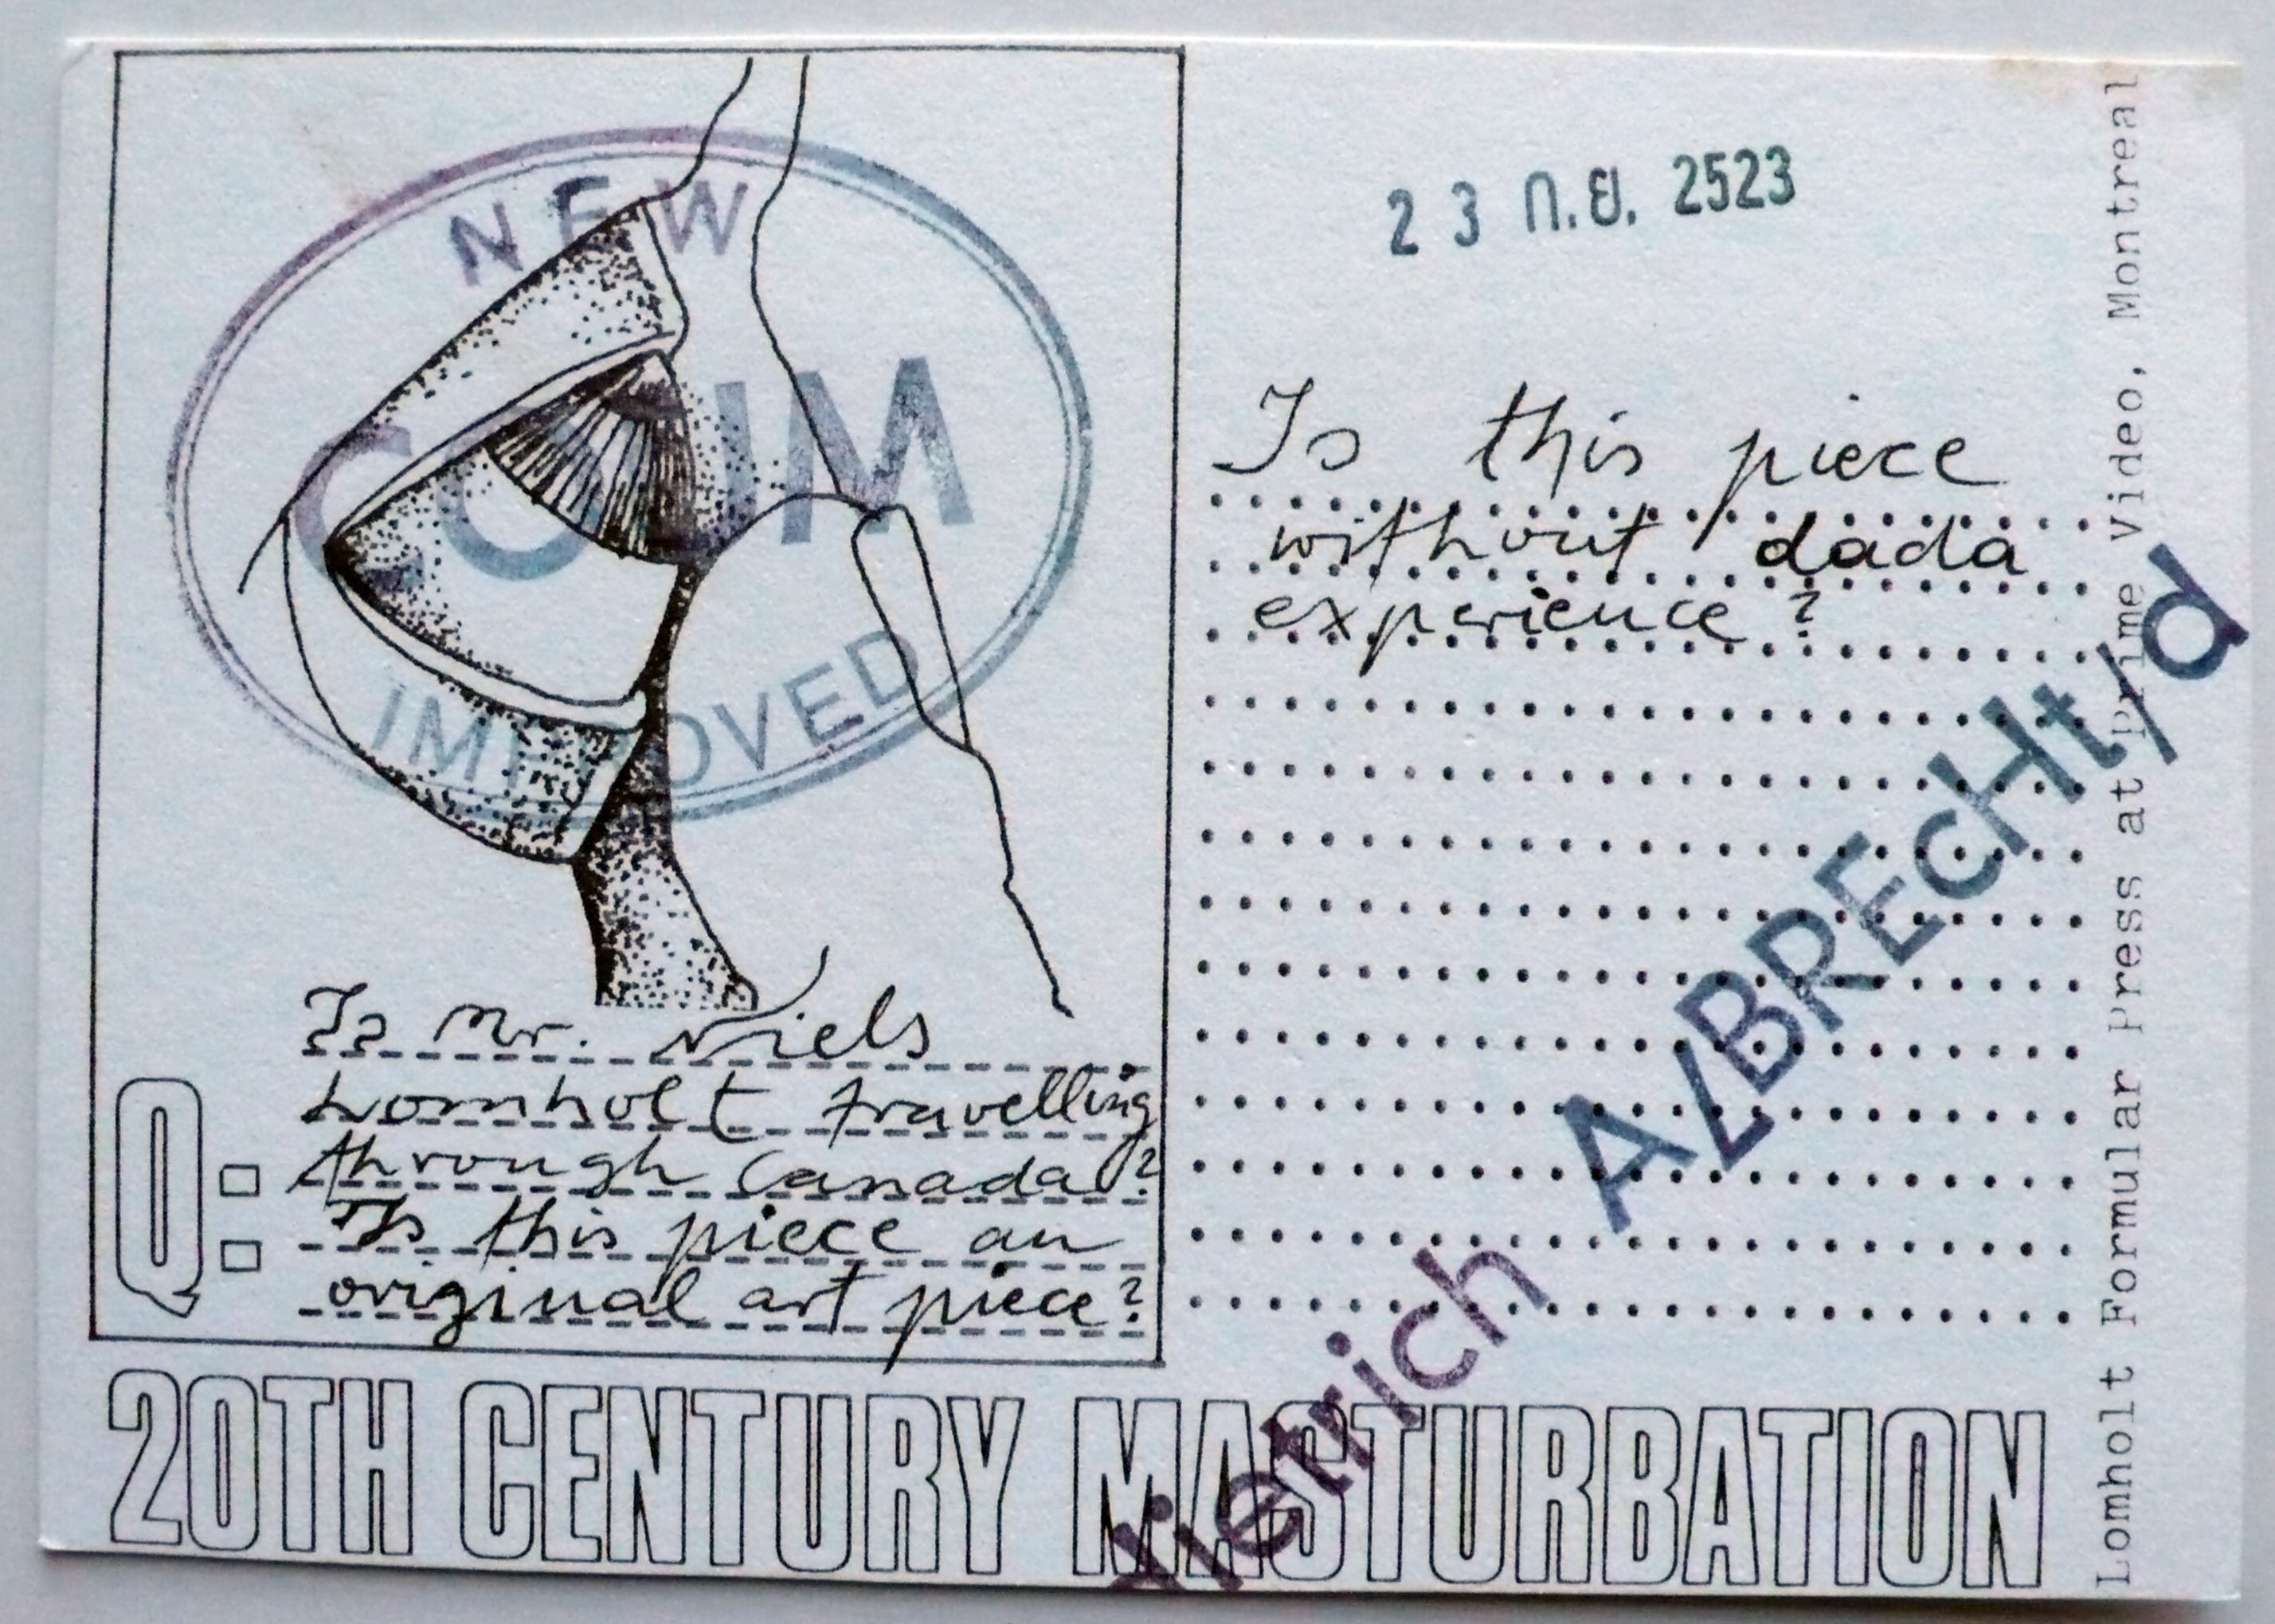 NEW
COUM
IMPROVED
Is Mr. Niels
Lomholt travelling
through Canada?
Is this piece an
original art piece?
Q:
20TH CENTURY MASTURBATION
23 ก.ย. 2523
Is this piece
without dada
experience?
dietrich ALBREcHt/d
Lomholt Formular Press at Prime Video, Montreal